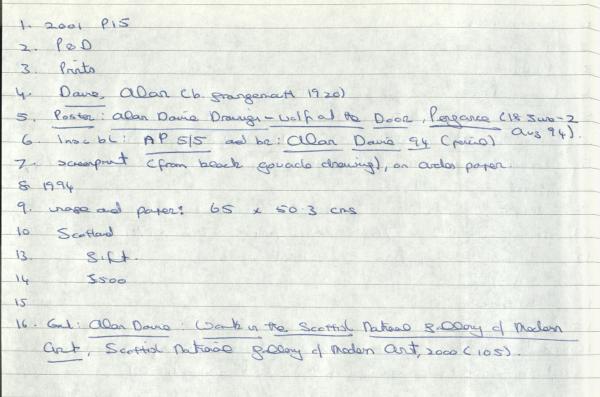 1. 2001 P15
2. P&D
3. Prints
4. Davie, Alan (b. Grangemouth 1920)
5. Poster: Alan Davie Drawings - Wolf at the Door, Penzance (18 June - 2
Aug 94).
6. Insc bl: AP 5/5 and br: Alan Davie 94 (pencil)
7. screenprint (from black gouache drawing), on arches paper.
8 1994
9. image and paper: 65 x 50.3 cms
10 Scotland
13. Gift.
14 £500
15
16. Cat: Alan Davie: Work in the Scottish National Gallery of Modern
Art, Scottish National Gallery of Modern Art, 2000 (105).